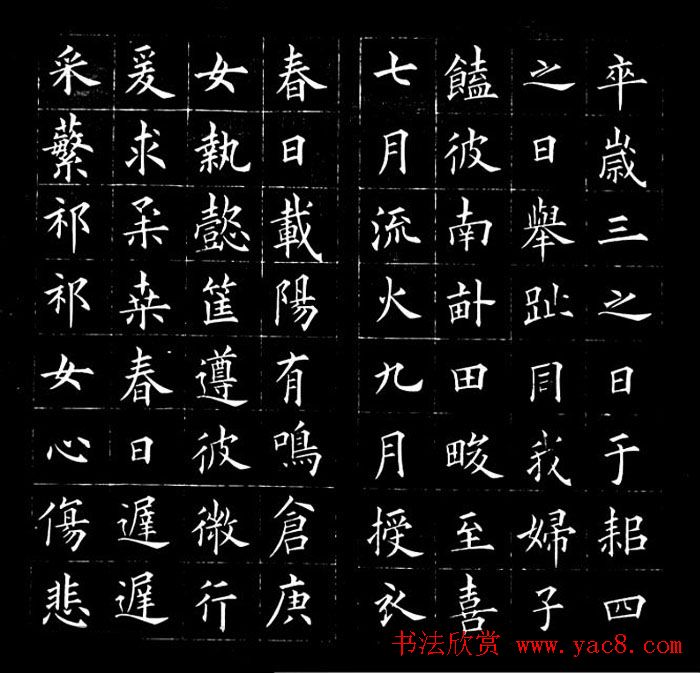 卒歲三之日于耜四
之日舉趾同我婦子
饁彼南畝田畯至喜
七月流火九月授衣
春日載陽有鳴倉庚
女執懿筐遵彼微行
爰求柔桑春日遲遲
采蘩祁祁女心傷悲
书法欣赏 www.yac8.com